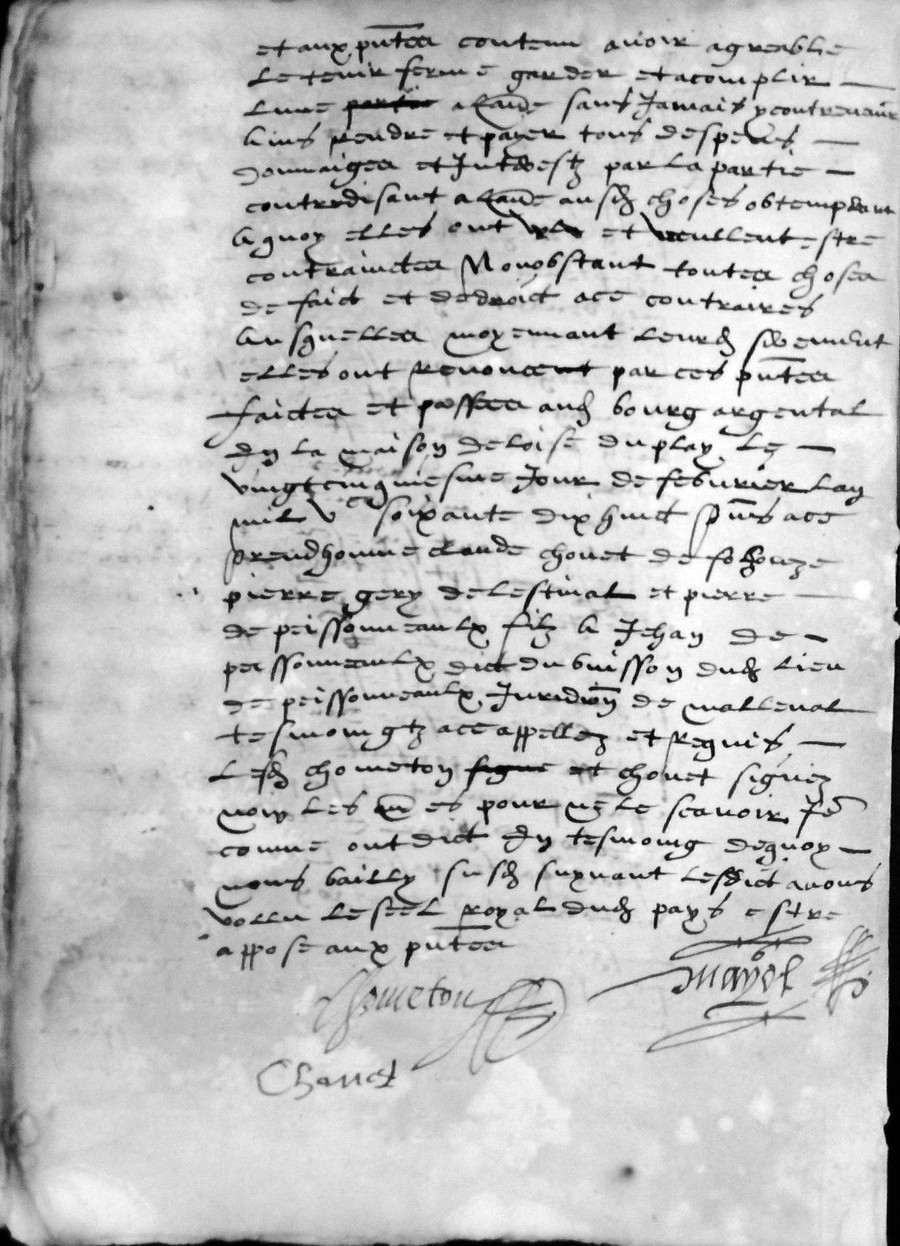 et aux pntes contenu avoir agreable
Le tenir ferme garder et acomplir
Lune partie a Laude sans Jamais y contrevenir
Ains rendre et payer tous despens
Dommaiges et Interestz par la partie
contredisant a Laude ausd choses obtemperant
A quoy elles ont vlu et veullent estre
contrainctes Nonobstant toutes choses
de faict et de droict a ce contraires
Ausquelles moyennant leurd serement
elles ont Renoncent par ces pntes
faictes et passees aud bourg argental
En la maison de loise du play Le
vingtcinquiesme Jour de febvrier Lan
mil vc soixante dix huict pns a ce
preudhomme claude chovet de
pierre gery de lestival et pierre
de peissonneaulx filz A Jehan de
peissonneaulx dict du buisson dud Lieu
de peissonneaulx Juridion de malleval
tesmoingtz a ce appellez et Requis
Lesd chometon signe et chovet signez
non les es pour ne le scavoir
comme ont dict En tesmoing de quoy
nous bailly susd suyvant Lesdict avons
vollu le seel royal dud pays estre
appose aux pntes
Chometon
Mayol
Chovet